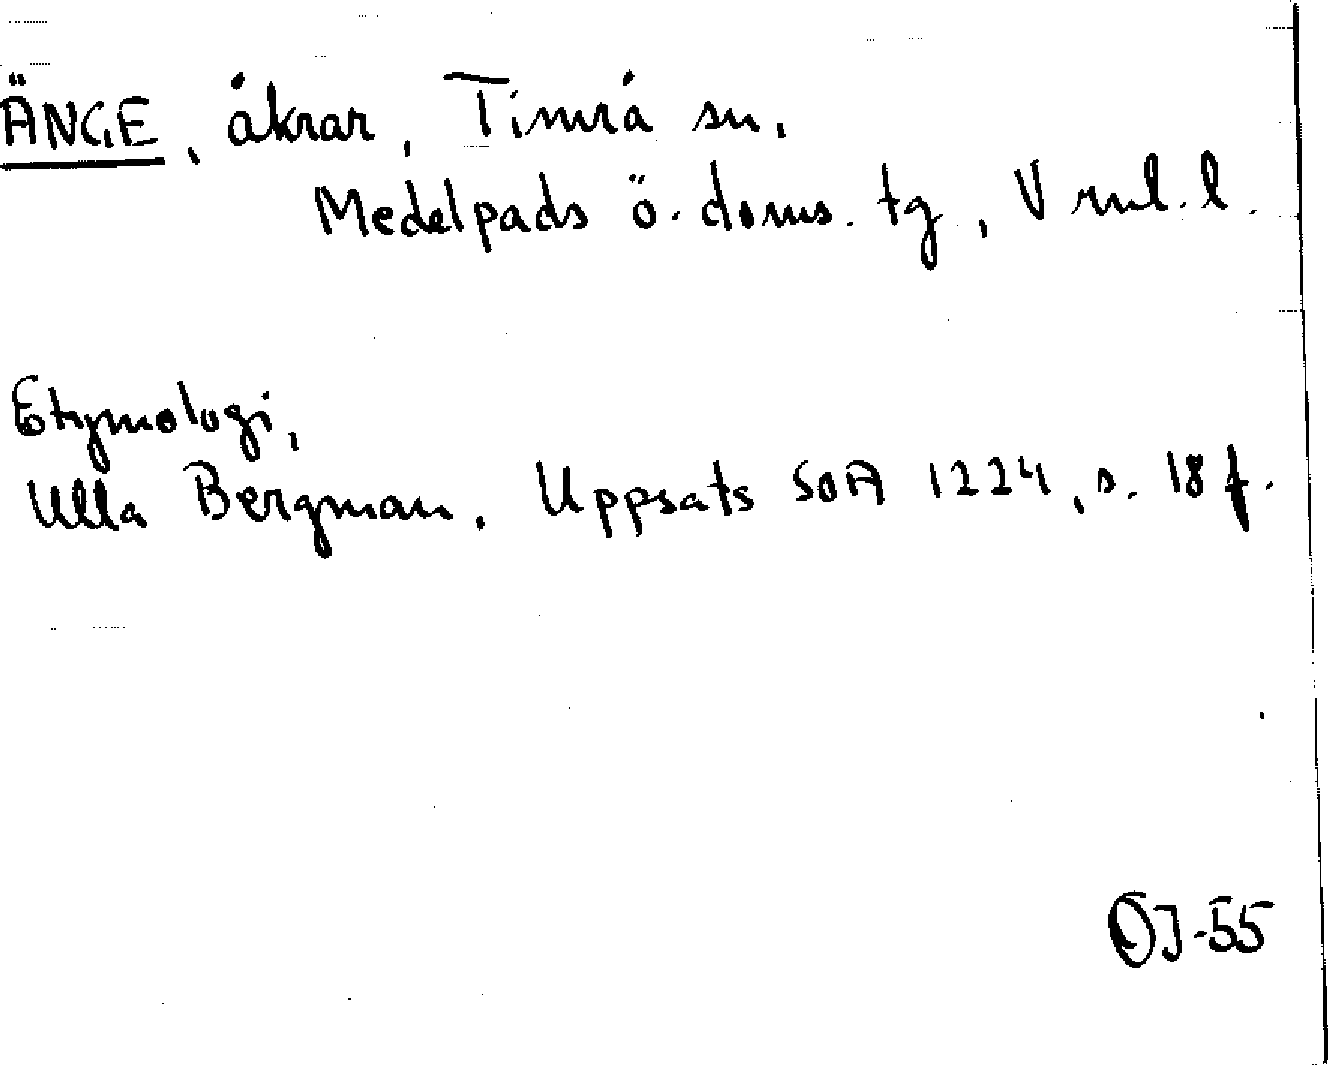 ÄNGE, åkrar, Timrå sn.
Medelpads ö. doms. tg, V nl. l.
Etymologi,
Ulla Bergman. Uppsats SOA 1224, s. 18 f.
OJ-55